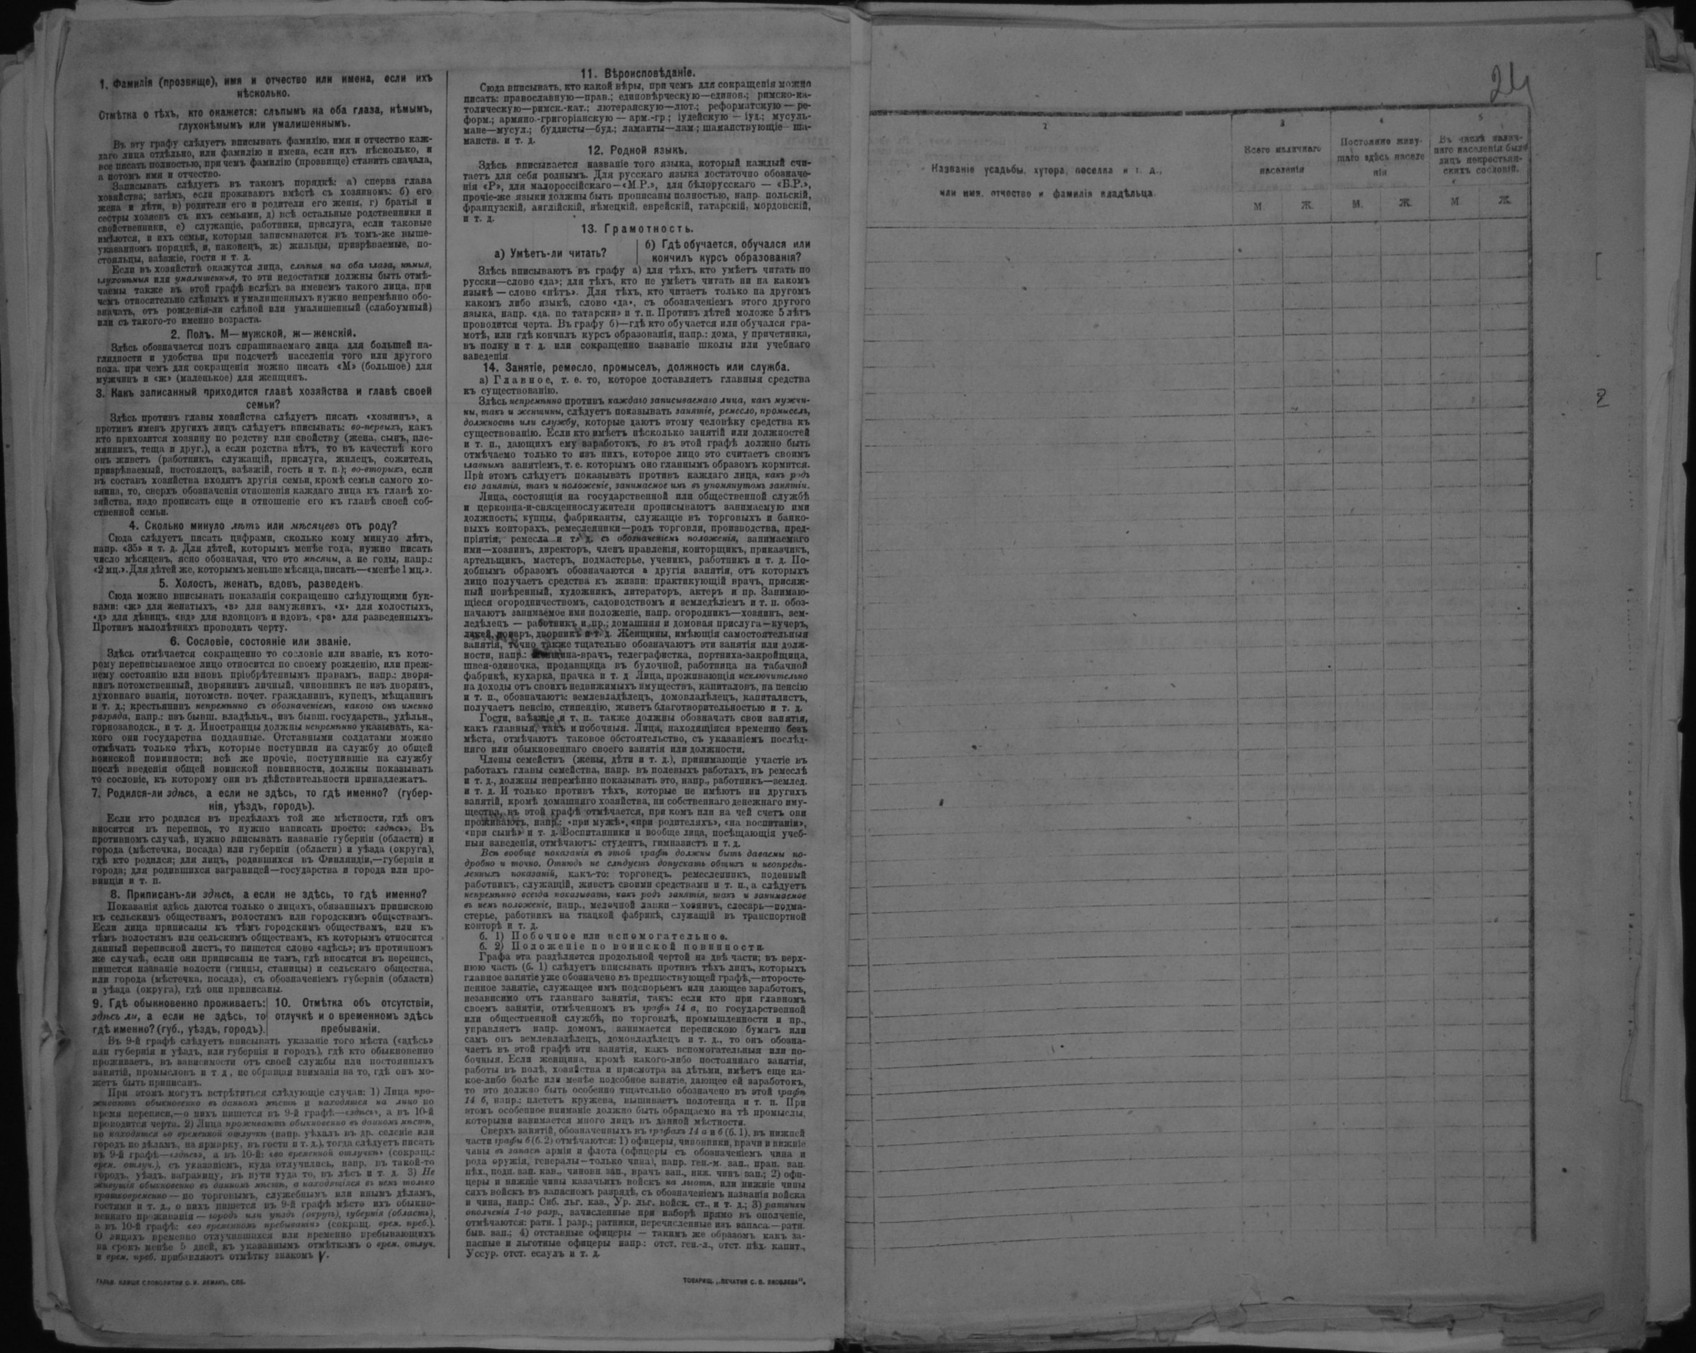 1. Фамилія (прозвище), имя и отчество или имена, если ихъ
нѣсколько.
Отмѣтка о тѣхъ, кто окажется: слѣпымъ на оба глаза, нѣмымъ,
глухонѣмымъ или умалишеннымъ.
Въ эту графу слѣдуетъ вписывать фамилію, имя и отчество каж-
даго лица отдѣльно, или фамилію и имена, если ихъ нѣсколько, и
все писать полностью, при чемъ фамилію (прозвище) ставить сначала,
а потомъ имя и отчество.
Записывать слѣдуетъ въ такомъ порядкѣ: а) сперва глава
хозяйства; затѣмъ, если проживаютъ вмѣстѣ съ хозяиномъ: б) его
жена и дѣти, в) родители его и родители его жены, г) братья и
сестры хозяевъ съ ихъ семьями, д) всѣ остальные родственники и
свойственники, е) служащіе, работники, прислуга, если таковые
имѣются, и ихъ семьи, которыя записываются въ томъ-же выше-
указанномъ порядкѣ, и, наконецъ, ж) жильцы, призрѣваемые, по-
стояльцы, заѣзжіе, гости и т. д.
Если въ хозяйствѣ окажутся лица, слѣпыя на оба глаза, нѣмыя,
глухонѣмыя или умалишенныя, то эти недостатки должны быть отмѣ-
чаемы также въ этой графѣ вслѣдъ за именемъ такого лица, при
чемъ относительно слѣпыхъ и умалишенныхъ нужно непремѣнно обо-
значать, отъ рожденія-ли слѣпой или умалишенный (слабоумный)
или съ такого-то именно возраста.
2. Полъ. М—мужской, ж—женскій.
Здѣсь обозначается полъ спрашиваемаго лица для большей на-
глядности и удобства при подсчетѣ населенія того или другого
пола, при чемъ для сокращенія можно писать «М» (большое) для
мужчинъ и «ж» (маленькое) для женщинъ.
3. Какъ записанный приходится главѣ хозяйства и главѣ своей
семьи?
Здѣсь противъ главы хозяйства слѣдуетъ писать «хозяинъ», а
противъ именъ другихъ лицъ слѣдуетъ вписывать: во-первыхъ, какъ
кто приходится хозяину по родству или свойству (жена, сынъ, пле-
мянникъ, теща и друг.), а если родства нѣтъ, то въ качествѣ кого
онъ живетъ (работникъ, служащій, прислуга, жилецъ, сожитель,
призрѣваемый, постоялецъ, заѣзжій, гость и т. п.); во-вторыхъ, если
въ составъ хозяйства входятъ другія семьи, кромѣ семьи самого хо-
зяина, то, сверхъ обозначенія отношенія каждаго лица къ главѣ хо-
зяйства, надо прописать еще и отношеніе его къ главѣ своей соб-
ственной семьи.
4. Сколько минуло лѣтъ или мѣсяцевъ отъ роду?
Сюда слѣдуетъ писать цифрами, сколько кому минуло лѣтъ,
напр. «35» и т. д. Для дѣтей, которымъ менѣе года, нужно писать
число мѣсяцевъ, ясно обозначая, что это мѣсяцы, а не годы, напр.:
«2 мц.». Для дѣтей же, которымъ меньше мѣсяца, писать—«менѣе 1 мц.».
5. Холостъ, женатъ, вдовъ, разведенъ.
Сюда можно вписывать показанія сокращенно слѣдующими бук-
вами: «ж» для женатыхъ, «з» для замужнихъ, «х» для холостыхъ,
«д» для дѣвицъ, «вд» для вдовцовъ и вдовъ, «рз» для разведенныхъ.
Противъ малолѣтнихъ проводить черту.
6. Сословіе, состояніе или званіе.
Здѣсь отмѣчается сокращенно то сословіе или званіе, къ кото-
рому переписываемое лицо относится по своему рожденію, или преж-
нему состоянію или вновь пріобрѣтеннымъ правамъ, напр.: дворя-
нинъ потомственный, дворянинъ личный, чиновникъ не изъ дворянъ,
духовнаго званія, потомств. почет. гражданинъ, купецъ, мѣщанинъ
и т. д.; крестьянинъ непремѣнно съ обозначеніемъ, какого онъ именно
разряда, напр.: изъ бывш. владѣльч., изъ бывш. государств., удѣльн.,
горнозаводск., и т. д. Иностранцы должны непремѣнно указывать, ка-
кого они государства подданные. Отставными солдатами можно
отмѣчать только тѣхъ, которые поступили на службу до общей
воинской повинности; всѣ же прочіе, поступившіе на службу
послѣ введенія общей воинской повинности, должны показывать
то сословіе, къ которому они въ дѣйствительности принадлежатъ.
7. Родился-ли здѣсь, а если не здѣсь, то гдѣ именно? (губер-
нія, уѣздъ, городъ).
Если кто родился въ предѣлахъ той же мѣстности, гдѣ онъ
вносится въ перепись, то нужно написать просто: «здѣсь». Въ
противномъ случаѣ, нужно вписывать названіе губерніи (области) и
города (мѣстечка, посада) или губерніи (области) и уѣзда (округа),
гдѣ кто родился; для лицъ, родившихся въ Финляндіи,—губерніи и
города; для родившихся заграницей—государства и города или про-
винціи и т. п.
8. Приписанъ-ли здѣсь, а если не здѣсь, то гдѣ именно?
Показанія здѣсь даются только о лицахъ, обязанныхъ припискою
къ сельскимъ обществамъ, волостямъ или городскимъ обществамъ.
Если лица приписаны къ тѣмъ городскимъ обществамъ, или къ
тѣмъ волостямъ или сельскимъ обществамъ, къ которымъ относится
данный переписной листъ, то пишется слово «здѣсь»; въ противномъ
же случаѣ, если они приписаны не тамъ, гдѣ вносятся въ перепись,
пишется названіе волости (гмины, станицы) и сельскаго общества,
или города (мѣстечка, посада), съ обозначеніемъ губерніи (области)
и уѣзда (округа), гдѣ они приписаны.
9. Гдѣ обыкновенно проживаетъ:
здѣсь ли, а если не здѣсь, то
гдѣ именно? (губ., уѣздъ, городъ).
10. Отмѣтка объ отсутствіи,
отлучкѣ и о временномъ здѣсь
пребываніи.
Въ 9-й графѣ слѣдуетъ вписывать указаніе того мѣста («здѣсь»
или губернія и уѣздъ, или губернія и городъ), гдѣ кто обыкновенно
проживаетъ, въ зависимости отъ своей службы или постоянныхъ
занятій, промысловъ и т. д., не обращая вниманія на то, гдѣ онъ мо-
жетъ быть приписанъ.
При этомъ могутъ встрѣтиться слѣдующіе случаи: 1) Лица про-
живаютъ обыкновенно въ данномъ мѣстѣ и находятся на лицо во
время переписи,—о нихъ пишется въ 9-й графѣ—«здѣсь», а въ 10-й
проводится черта. 2) Лица проживаютъ обыкновенно въ данномъ мѣстѣ,
но находятся во временной отлучкѣ (напр. уѣхалъ въ др. селеніе или
городъ по дѣламъ, на ярмарку, въ гости и т. д.), тогда слѣдуетъ писать
въ 9-й графѣ—«здѣсь», а въ 10-й: «во временной отлучкѣ» (сокращ.:
врем. отлуч.), съ указаніемъ, куда отлучились, напр. въ такой-то
городъ, уѣздъ, заграницу, въ пути туда то, въ лѣсъ и т. д. 3) Не
живущія обыкновенно въ данномъ мѣстѣ, а находящіяся въ немъ только
кратковременно — по торговымъ, служебнымъ или инымъ дѣламъ,
гостями и т. д., о нихъ пишется въ 9-й графѣ мѣсто ихъ обыкно-
веннаго проживанія — городъ или уѣздъ (округъ), губернія (область),
а въ 10-й графѣ: «во временномъ пребываніи» (сокращ. врем. преб.).
О лицахъ временно отлучившихся или временно пребывающихъ
на срокъ менѣе 5 дней, къ указаннымъ отмѣткамъ о врем. отлуч.
и врем. преб. прибавляютъ отмѣтку знакомъ V.
11. Вѣроисповѣданіе.
Сюда вписывать, кто какой вѣры, при чемъ для сокращенія можно
писать: православную—прав.; единовѣрческую—единов.; римско-ка-
толическую—римск.-кат.; лютеранскую—лют.; реформатскую — ре-
форм.; армяно.-григоріанскую — арм.-гр.; іудейскую — іуд.; мусуль-
мане—мусул.; буддисты—буд.; ламаиты—лам.; шаманствующіе—ша-
манств. и т. д.
12. Родной языкъ.
Здѣсь вписывается названіе того языка, который каждый счи-
таетъ для себя роднымъ. Для русскаго языка достаточно обозначе-
нія «Р», для малороссійскаго—«М.Р.», для бѣлорусскаго — «Б.Р.»,
прочіе-же языки должны быть прописаны полностью, напр. польскій,
французскій, англійскій, нѣмецкій, еврейскій, татарскій, мордовскій,
и т. д.
13. Грамотность.
а) Умѣетъ-ли читать?
б) Гдѣ обучается, обучался или
кончилъ курсъ образованія?
Здѣсь вписываютъ въ графу а) для тѣхъ, кто умѣетъ читать по
русски—слово «да»; для тѣхъ, кто не умѣетъ читать ни на какомъ
языкѣ — слово «нѣтъ». Для тѣхъ, кто читаетъ только на другомъ
какомъ либо языкѣ, слово «да», съ обозначеніемъ этого другого
языка, напр. «да, по татарски» и т. п. Противъ дѣтей моложе 5 лѣтъ
проводится черта. Въ графу б)—гдѣ кто обучается или обучался гра-
мотѣ, или гдѣ кончилъ курсъ образованія, напр.: дома, у причетника,
въ полку и т. д. или сокращенно названіе школы или учебнаго
заведенія
14. Занятіе, ремесло, промыселъ, должность или служба.
а) Главное, т. е. то, которое доставляетъ главныя средства
къ существованію.
Здѣсь непремѣнно противъ каждаго записываемаго лица, какъ мужчи-
ны, такъ и женщины, слѣдуетъ показывать занятіе, ремесло, промыселъ,
должность или службу, которые даютъ этому человѣку средства къ
существованію. Если кто имѣетъ нѣсколько занятій или должностей
и т. п., дающихъ ему заработокъ, то въ этой графѣ должно быть
отмѣчаемо только то изъ нихъ, которое лицо это считаетъ своимъ
главнымъ занятіемъ, т. е. которымъ оно главнымъ образомъ кормится.
При этомъ слѣдуетъ показывать противъ каждаго лица, какъ родъ
его занятія, такъ и положеніе, занимаемое имъ въ упомянутомъ занятіи.
Лица, состоящія на государственной или общественной службѣ
и церковно-и-священнослужители прописываютъ занимаемую ими
должность; купцы, фабриканты, служащіе въ торговыхъ и банко-
выхъ конторахъ, ремесленники—родъ торговли, производства, пред-
пріятія, ремесла и т. д. съ обозначеніемъ положенія, занимаемаго
ими—хозяинъ, директоръ, членъ правленія, конторщикъ, приказчикъ,
артельщикъ, мастеръ, подмастерье, ученикъ, работникъ и т. д. По-
добнымъ образомъ обозначаются и другія занятія, отъ которыхъ
лицо получаетъ средства къ жизни: практикующій врачъ, присяж-
ный повѣренный, художникъ, литераторъ, актеръ и пр. Занимаю-
щіеся огородничествомъ, садоводствомъ и земледѣліемъ и т. п. обоз-
начаютъ занимаемое ими положеніе, напр. огородникъ—хозяинъ, зем-
ледѣлецъ — работникъ и пр.; домашняя и домовая прислуга—кучеръ,
лакей, поваръ, дворникъ и т. д. Женщины, имѣющія самостоятельныя
занятія, точно также тщательно обозначаютъ эти занятія или долж-
ности, напр.: женщина-врачъ, телеграфистка, портниха-закройщица,
швея-одиночка, продавщица въ булочной, работница на табачной
фабрикѣ, кухарка, прачка и т. д. Лица, проживающія исключительно
на доходы отъ своихъ недвижимыхъ имуществъ, капиталовъ, на пенсію
и т. п., обозначаютъ: землевладѣлецъ, домовладѣлецъ, капиталистъ,
получаетъ пенсію, стипендію, живетъ благотворительностью и т. д.
Гости, заѣзжіе и т. п. также должны обозначать свои занятія,
какъ главныя, такъ и побочныя. Лица, находящіяся временно безъ
мѣста, отмѣчаютъ таковое обстоятельство, съ указаніемъ послѣд-
няго или обыкновеннаго своего занятія или должности.
Члены семействъ (жены, дѣти и т. д.), принимающіе участіе въ
работахъ главы семейства, напр. въ полевыхъ работахъ, въ ремеслѣ
и т. д., должны непремѣнно показывать это, напр., работникъ—землед.
и т. д. И только противъ тѣхъ, которые не имѣютъ ни другихъ
занятій, кромѣ домашняго хозяйства, ни собственнаго денежнаго иму-
щества, въ этой графѣ отмѣчается, при комъ или на чей счетъ они
проживаютъ, напр.: «при мужѣ», «при родителяхъ», «на воспитаніи»,
«при сынѣ» и т. д. Воспитанники и вообще лица, посѣщающія учеб-
ныя заведенія, отмѣчаютъ: студентъ, гимназистъ и т. д.
Всѣ вообще показанія въ этой графѣ должны быть даваемы по-
дробно и точно. Отнюдь не слѣдуетъ допускать общихъ и неопредѣ-
ленныхъ показаній, какъ-то: торговецъ, ремесленникъ, поденный
работникъ, служащій, живетъ своими средствами и т. п., а слѣдуетъ
непремѣнно всегда показывать, какъ родъ занятія, такъ и занимаемое
въ немъ положеніе, напр., мелочной лавки—хозяинъ, слесарь—подма-
стерье, работникъ на ткацкой фабрикѣ, служащій въ транспортной
конторѣ и т. д.
б. 1) Побочное или вспомогательное.
б. 2) Положеніе по воинской повинности.
Графа эта раздѣляется продольной чертой на двѣ части; въ верх-
нюю часть (б. 1) слѣдуетъ вписывать противъ тѣхъ лицъ, которыхъ
главное занятіе уже обозначено въ предшествующей графѣ,—второсте-
пенное занятіе, служащее имъ подспорьемъ или дающее заработокъ,
независимо отъ главнаго занятія, такъ: если кто при главномъ
своемъ занятіи, отмѣченномъ въ графѣ 14 а, по государственной
или общественной службѣ, по торговлѣ, промышленности и пр.,
управляетъ напр. домомъ, занимается перепискою бумагъ или
самъ онъ землевладѣлецъ, домовладѣлецъ и т. д., то онъ обозна-
чаетъ въ этой графѣ эти занятія, какъ вспомогательныя или по-
бочныя. Если женщина, кромѣ какого-либо постояннаго занятія,
работы въ полѣ, хозяйства и присмотра за дѣтьми, имѣетъ еще ка-
кое-либо болѣе или менѣе подсобное занятіе, дающее ей заработокъ,
то это должно быть особенно тщательно обозначено въ этой графѣ
14 б, напр.: плететъ кружева, вышиваетъ полотенца и т. п. При
этомъ особенное вниманіе должно быть обращаемо на тѣ промыслы,
которыми занимается много лицъ въ данной мѣстности.
Сверхъ занятій, обозначенныхъ въ графахъ 14 а и б (б. 1), въ нижней
части графы б (б. 2) отмѣчаются: 1) офицеры, чиновники, врачи и нижніе
чины въ запасѣ арміи и флота (офицеры съ обозначеніемъ чина и
рода оружія, генералы—только чина), напр. ген.-м. зап., прап. зап.
пѣх., подп. зап. кав., чиновн. зап., врачъ зап., ниж. чинъ зап.; 2) офи-
церы и нижніе чины казачьихъ войскъ на льготѣ, или нижніе чины
сихъ войскъ въ запасномъ разрядѣ, съ обозначеніемъ названія войска
и чина, напр.: Сиб. льг. каз., Ур. льг. войск. ст., и т. д.; 3) ратники
ополченія 1-го разр., зачисленные при наборѣ прямо въ ополченіе,
отмѣчаются: ратн. 1 разр.; ратники, перечисленные изъ запаса—ратн.
быв. зап.; 4) отставные офицеры — такимъ же образомъ какъ за-
пасные и льготные офицеры напр.: отст. ген.-л., отст. пѣх. капит.,
Уссур. отст. есаулъ и т. д.
ТОВАРИЩ. „ПЕЧАТНЯ С. П. ЯКОВЛЕВА".
24
2
3
4
5
Названіе усадьбы, хутора, поселка и т. д.,
или имя, отчество и фамилія владѣльца.
Всего наличнаго
населенія
Постоянно живу-
щаго здѣсь населе
нія
Въ числѣ налич-
наго населенія было
лицъ некрестьян-
скихъ сословій.
М. Ж. М. Ж. М. Ж.